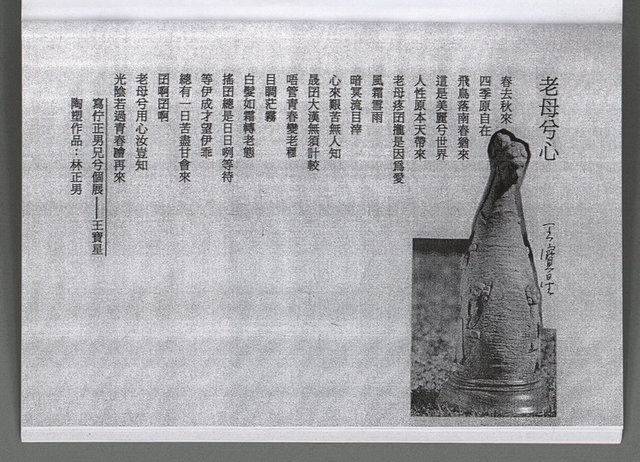 老母兮心
王寶星
春去秋來
四季原自在
飛鳥落南春猶來
這是美麗兮世界
人性原本天帶來
老母疼囝攏是因爲愛
風霜雪雨
暗冥流目滓
心來艱苦無人知
晟囝大漢無須計較
唔管青春變老穤
目睭茫霧
白髮如霜轉老態
搖囝總是日日咧等待
等伊成才望伊乖
總有一日苦盡甘會來
囝啊囝啊
老母兮用心汝豈知
光陰若過青春𠢕再來
寫佇正男兄兮個展——王寶星
陶塑作品：林正男